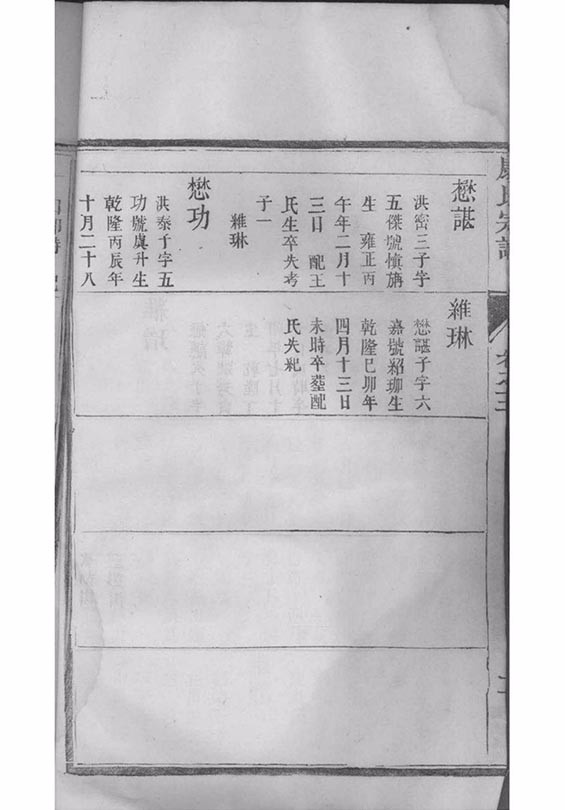 懋諶
洪密三子字
五傑號慎旃
生 雍正丙
午年二月十
三日 配王
氏生卒失考
子一
維琳
懋功
洪泰子字五
功號虞升生
乾隆丙辰年
十月二十八
維琳
懋諶子字六
嘉號紹珈生
乾隆己卯年
四月十三日
未時卒塟配
氏失紀
氏宗譜